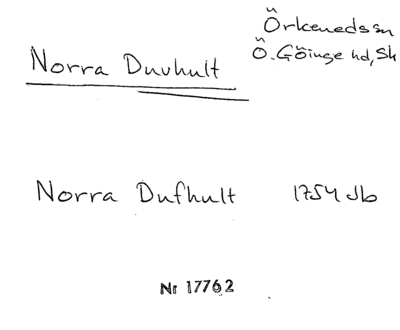 Örkeneds sn
Norra Duvhult Ö. Göinge hd, Sk
Norra Dufhult 1754 Jb
Nr 17762